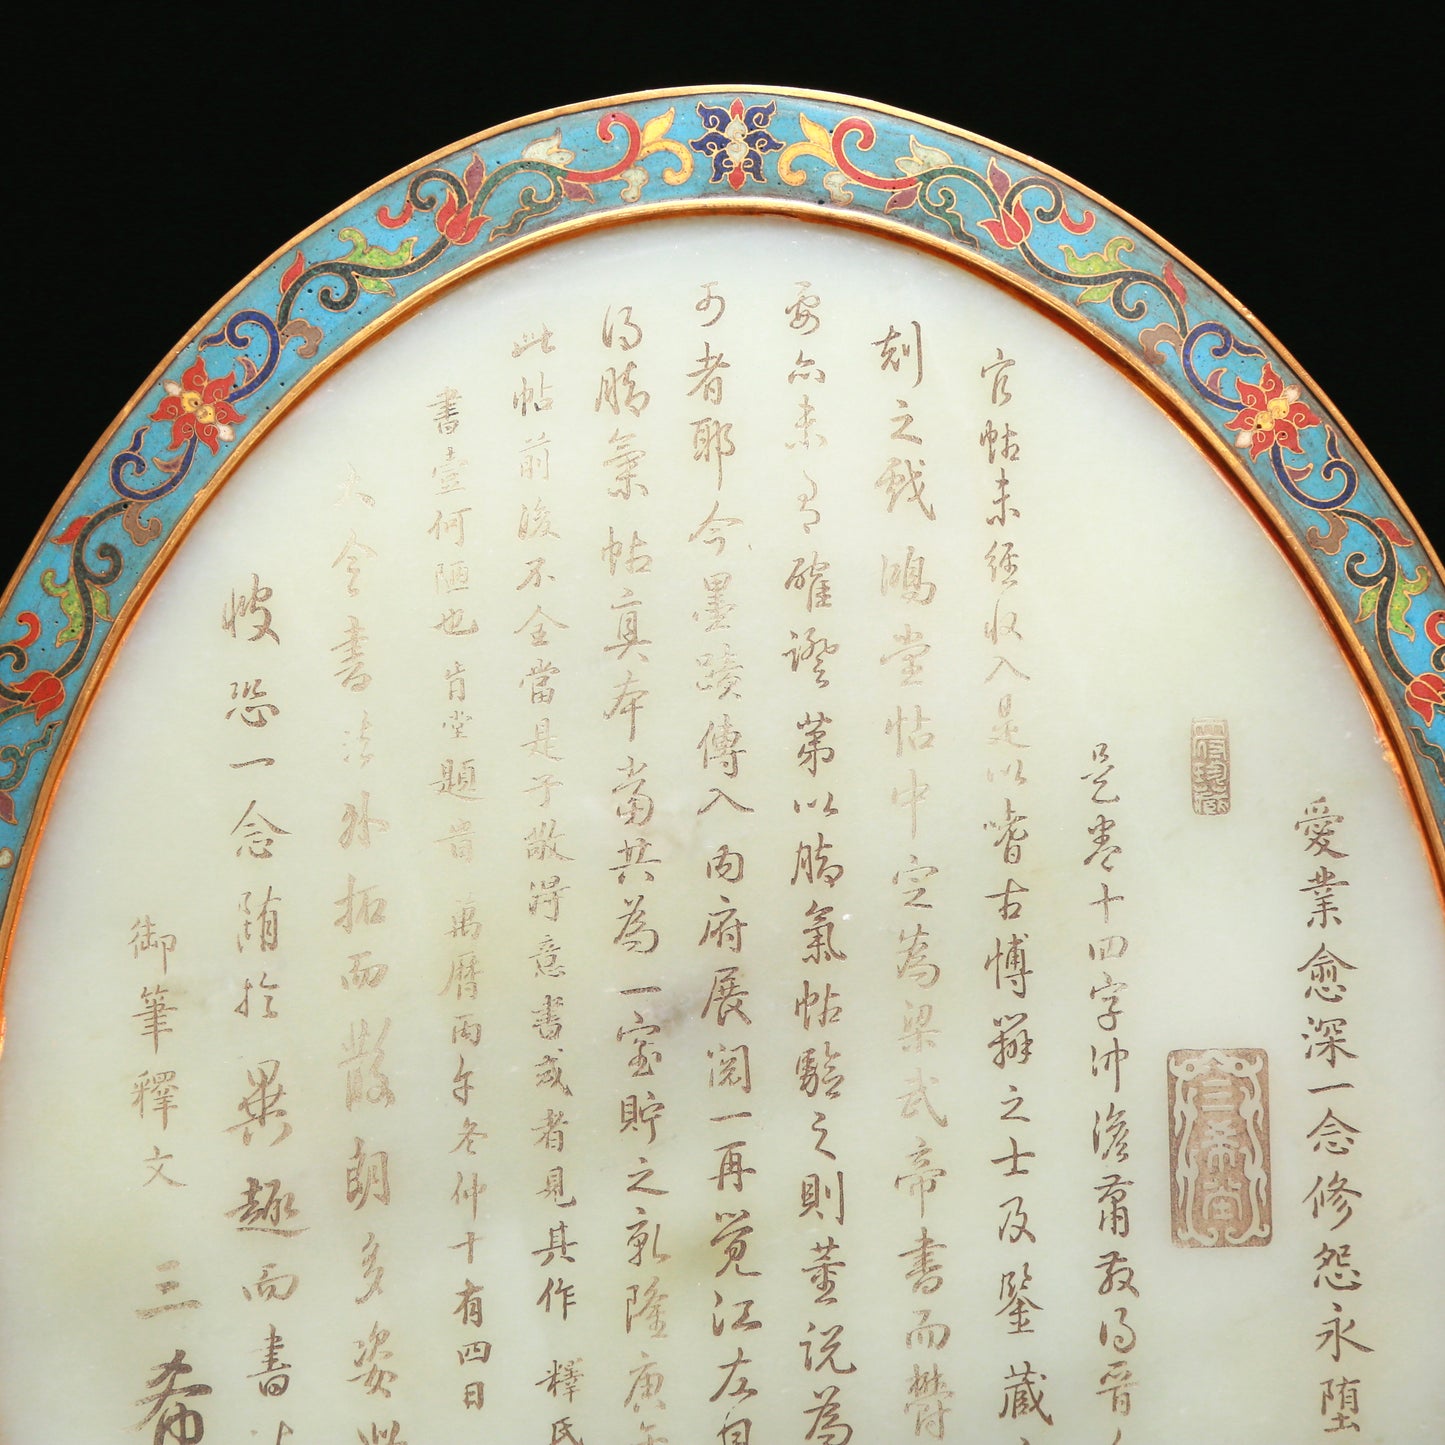 愛業愈深一念修怨永堕
三希堂
是卷十四字沖澹蕭散得晉
官帖未經收入是以嗜古博辨之士及鑒藏
刻之戲鴻堂帖中定為梁武帝書而欝
要亦未有確證第以腦氣帖驗之則董説為
可者耶今墨蹟傳入内府展閲一再覺江左自
得腦氣帖真本當共為一室貯之乾隆庚午
此帖前後不全當是子敬得意書或者見其作 釋氏
書壹何陋也肯堂題 萬曆丙午冬仲十有四日
大令書法外拓而散朗多姿此
恐一念随於異趣而書法
御筆釋文 三希